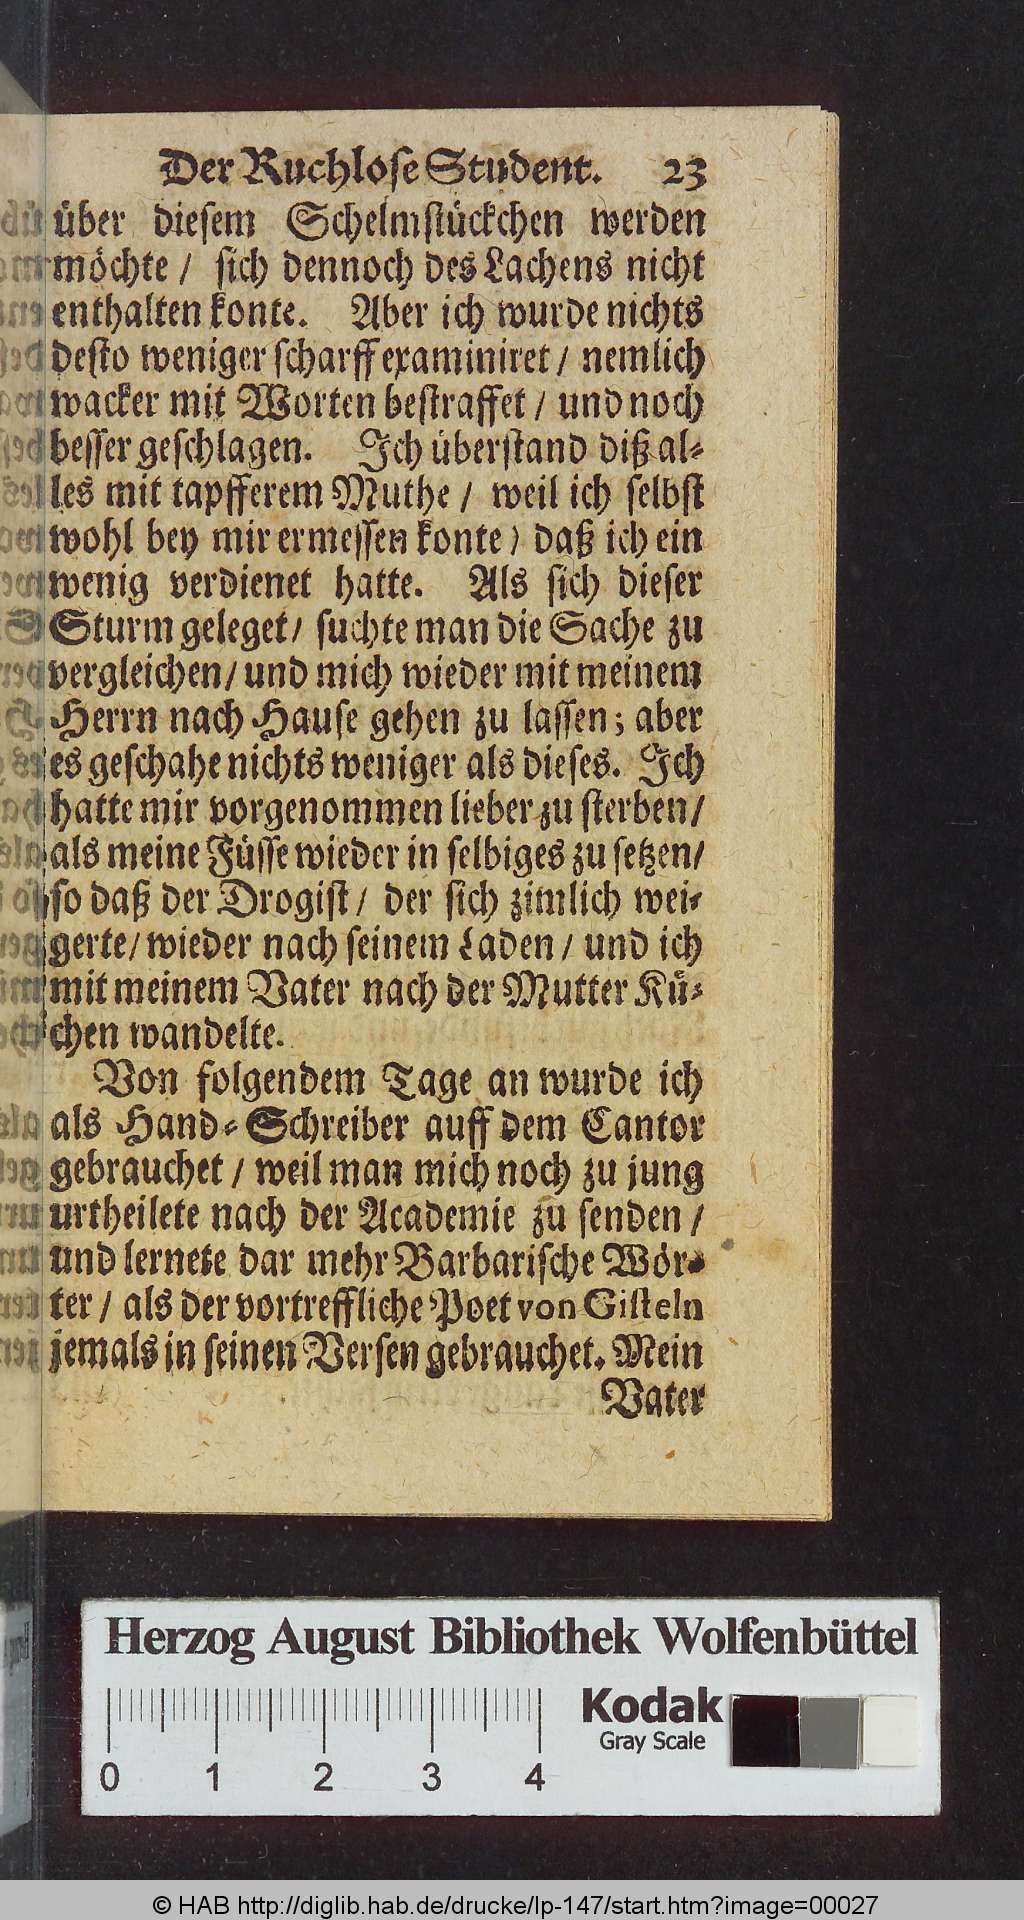 Der Ruchlose Student. 23
über diesem Schelmstückchen werden
möchte / sich dennoch des Lachens nicht
enthalten konte. Aber ich wurde nichts
desto weniger scharff examiniret / nemlich
wacker mit Worten bestraffet / und noch
besser geschlagen. Ich überstand diß al-
les mit tapfferem Muthe / weil ich selbst
wohl bey mir ermessen konte / daß ich ein
wenig verdienet hatte. Als sich dieser
Sturm geleget / suchte man die Sache zu
vergleichen / und mich wieder mit meinem
Herrn nach Hause gehen zu lassen; aber
es geschahe nichts weniger als dieses. Ich
hatte mir vorgenommen lieber zu sterben /
als meine Füsse wieder in selbiges zu setzen /
so daß der Drogist / der sich zimlich wei-
gerte / wieder nach seinem Laden / und ich
mit meinem Vater nach der Mutter Kü-
chen wandelte.
Von folgendem Tage an wurde ich
als Hand-Schreiber auff dem Cantor
gebrauchet / weil man mich noch zu jung
urtheilete nach der Academie zu senden /
und lernete dar mehr Barbarische Wör-
ter / als der vortreffliche Poet von Gisteln
jemals in seinen Versen gebrauchet. Mein
Vater
Herzog August Bibliothek Wolfenbüttel
Kodak
Gray Scale
0 1 2 3 4
© HAB http://diglib.hab.de/drucke/lp-147/start.htm?image=00027